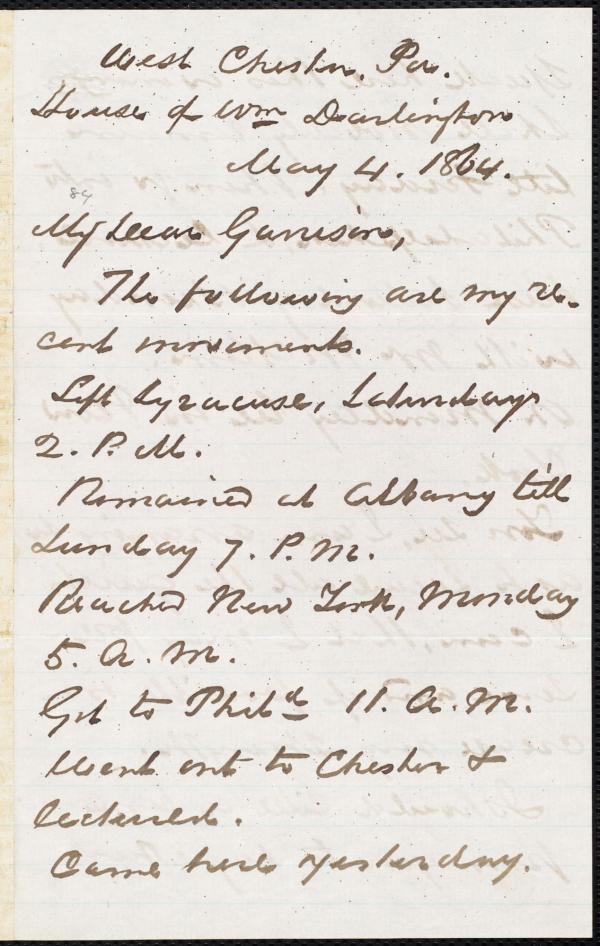 West Chester. Pa.
House of Wm Darlington
May 4. 1864.
84
My Dear Garrison,
The following are my re-
cent movements.
Left Syracuse, Saturday
2. P. M.
Remained at Albany till
Sunday 7. P. M.
Reached New York, Monday
5. A. M.
Got to Phild 11. A. M.
Went out to Chester &
lectured.
Came here yesterday.